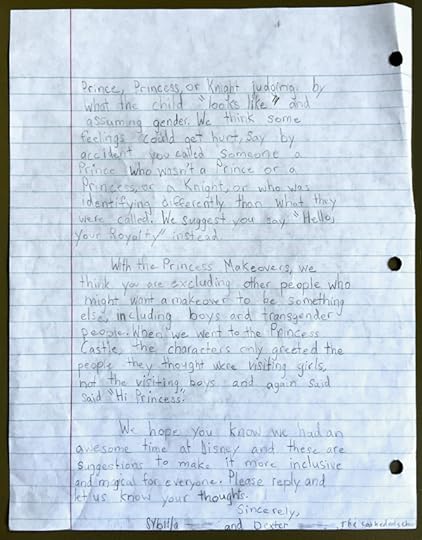 Prince, Princess, or Knight judging by
what the child "looks like" and
assuming gender. We think some
feelings could get hurt, say by
accident you called someone a
Prince who wasn't a Prince or a
Princess, or a Knight, or who was
identifying differently than what they
were called. We suggest you say "Hello,
Your Royalty" instead.
With the Princess Makeovers, we
think you are excluding other people who
might want a makeover to be something
else, including boys and transgender
people. When we went to the Princess
Castle, the characters only greeted the
people they thought were visiting girls,
not the visiting boys and again said
said "Hi Princess."
We hope you know we had an
awesome time at Disney and these are
suggestions to make it more inclusive
and magical for everyone. Please reply and
let us know your thoughts.
Sincerely,
and Dexter